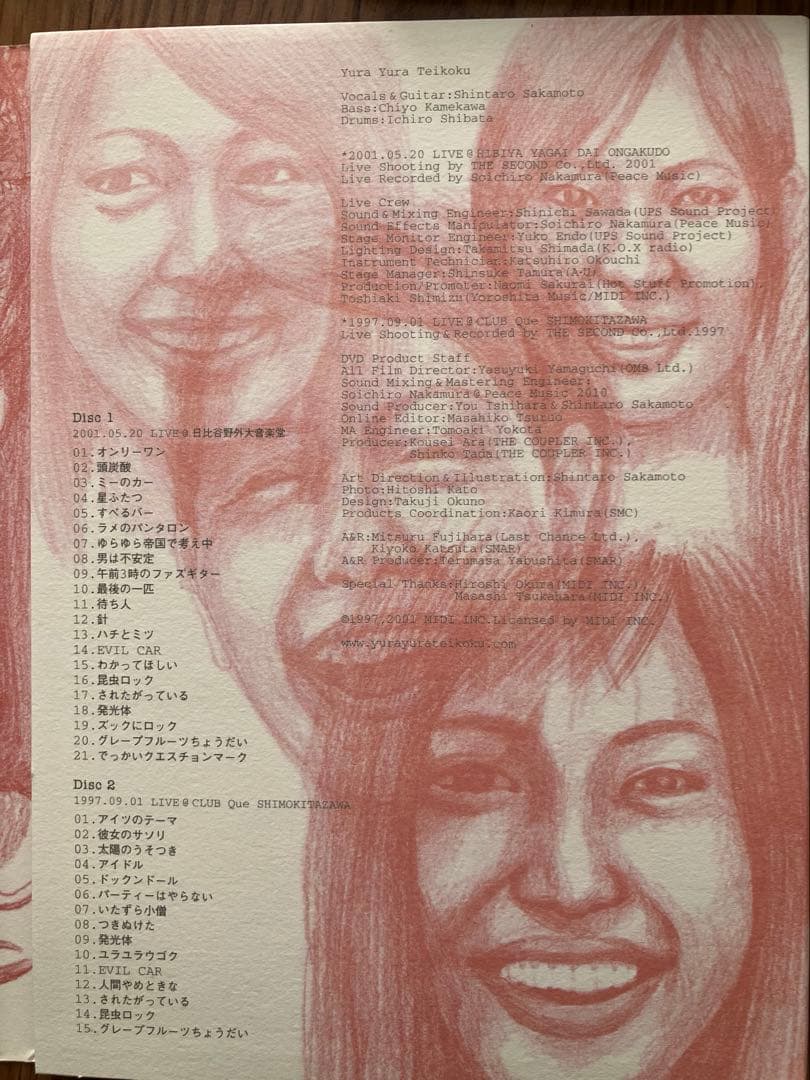 Yura Yura Teikoku
Vocals & Guitar:Shintaro Sakamoto
Bass:Chiyo Kamekawa
Drums:Ichiro Shibata
*2001.05.20 LIVE@HIBIYA YAGAI DAI ONGAKUDO
Live Shooting by THE SECOND Co.,Ltd. 2001
Live Recorded by Soichiro Nakamura(Peace Music)
Live Crew
Sound & Mixing Engineer:Shinichi Sawada(UPS Sound Project)
Sound Effects Manipulator:Soichiro Nakamura(Peace Music)
Stage Monitor Engineer:Yuko Endo(UPS Sound Project)
Lighting Design:Takamitsu Shimada(K.O.X radio)
Instrument Technician:Katsuhiro Okouchi
Stage Manager:Shinsuke Tamura(A·U)
Production/Promoter:Naomi Sakurai(Hot Stuff Promotion),
Toshiaki Shimizu(Yoroshita Music/MIDI INC.)
*1997.09.01 LIVE@CLUB Que SHIMOKITAZAWA
Live Shooting & Recorded by THE SECOND Co.,Ltd.1997
DVD Product Staff
All Film Director:Yasuyuki Yamaguchi(OMB Ltd.)
Sound Mixing & Mastering Engineer:
Soichiro Nakamura@Peace Music 2010
Sound Producer:You Ishihara & Shintaro Sakamoto
Online Editor:Masahiko Tsutsuo
MA Engineer:Tomoaki Yokota
Producer:Kousei Ara(THE COUPLER INC.),
Shinko Tada(THE COUPLER INC.)
Art Direction & Illustration:Shintaro Sakamoto
Photo:Hitoshi Kato
Design:Takuji Okuno
Products Coordination:Kaori Kimura(SMC)
A&R:Mitsuru Fujihara(Last Chance Ltd.),
Kiyoko Katsuta(SMAR)
A&R Producer:Terumasa Yabushita(SMAR)
Special Thanks:Hiroshi Okura(MIDI INC.),
Masashi Tsukahara(MIDI INC.)
©1997,2001 MIDI INC.Licensed by MIDI INC.
www.yurayurateikoku.com
Disc 1
2001.05.20 LIVE@日比谷野外大音楽堂
01.オンリーワン
02.頭炭酸
03.ミーのカー
04.星ふたつ
05.すべるバー
06.ラメのパンタロン
07.ゆらゆら帝国で考え中
08.男は不安定
09.午前3時のファズギター
10.最後の一匹
11.待ち人
12.針
13.ハチとミツ
14.EVIL CAR
15.わかってほしい
16.昆虫ロック
17.されたがっている
18.発光体
19.ズックにロック
20.グレープフルーツちょうだい
21.でっかいクエスチョンマーク
Disc 2
1997.09.01 LIVE@CLUB Que SHIMOKITAZAWA
01.アイツのテーマ
02.彼女のサソリ
03.太陽のうそつき
04.アイドル
05.ドックンドール
06.パーティーはやらない
07.いたずら小僧
08.つきぬけた
09.発光体
10.ユラユラウゴク
11.EVIL CAR
12.人間やめときな
13.されたがっている
14.昆虫ロック
15.グレープフルーツちょうだい